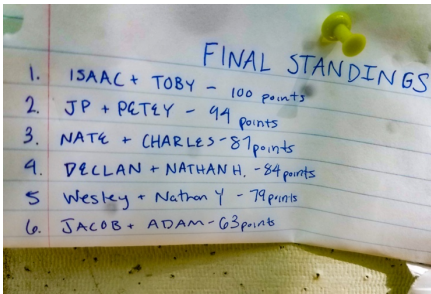 FINAL STANDINGS
1. ISAAC + TOBY - 100 points
2. JP + PETEY - 94 points
3. NATE + CHARLES - 87 points
4. DECLAN + NATHAN H. - 84 points
5 Wesley + Nathan Y - 79 points
6. JACOB + ADAM - 63 points